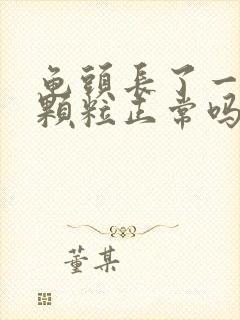 龟頭長了一
顆粒正常吗
董某